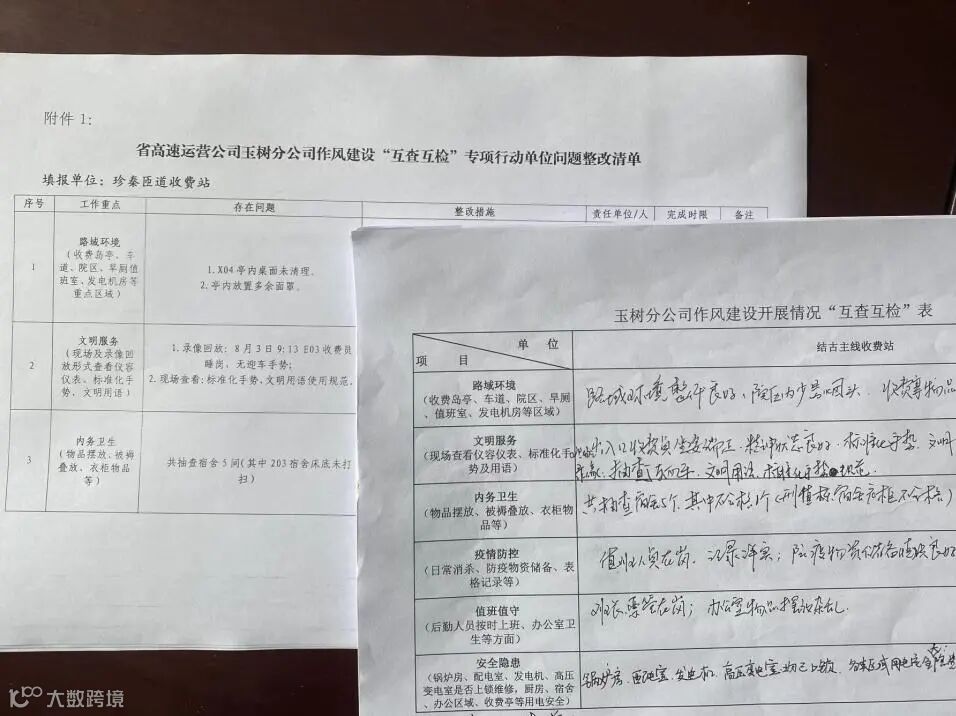 附件1:
省高速运营公司玉树分公司作风建设“互查互检”专项行动单位问题整改清单
填报单位：珍秦匝道收费站
序号 工作重点 存在问题 整改措施 责任单位/人 完成时限 备注
1
路域环境
（收费岛亭、车
道、院区、旱厕值
班室、发电机房等
重点区域）
1.X04亭内桌面未清理.
2.亭内放置多余面罩.
2
文明服务
（现场及录像回
放形式查看仪容
仪表、标准化手
势，文明用语）
1.录像回放: 8月3日9:13 E03收费员
睡岗、无迎车手势;
2.现场查看:标准化手势,文明用语使用规范,
3
内务卫生
（物品摆放、被褥
叠放、衣柜物品
等）
共抽查宿舍5间(其中203宿舍床底未打
扫)
玉树分公司作风建设开展情况“互查互检”表
单 位
项 目
结古主线收费站
路域环境
（收费岛亭、车道、院区、旱厕
、值班室、发电机房等区域）
路域环境整体良好、院区内少量烟头、收费亭物品
文明服务
（现场查看仪容仪表、标准化手
势及用语）
出入口收费员坐姿端正、精神状态良好、标准化手势、文明
文明用语、标准化手势规范.
内务卫生
（物品摆放、被褥叠放、衣柜物
品等）
共抽查宿舍5个,其中不合格1个
疫情防控
（日常消杀、防疫物资储备、表
格记录等）
值班人员在岗、记录详实；防疫物资储备情况良好
值班值守
（后勤人员按时上班、办公室卫
生等方面）
在岗；办公室物品摆放杂乱.
安全隐患
（锅炉房、配电室、发电机、高压
变电室是否上锁维修，厨房、宿舍
、办公区域、收费亭等用电安全）
锅炉房、配电室、发电机、高压变电室均已上锁、各区域用电安全
大数跨境